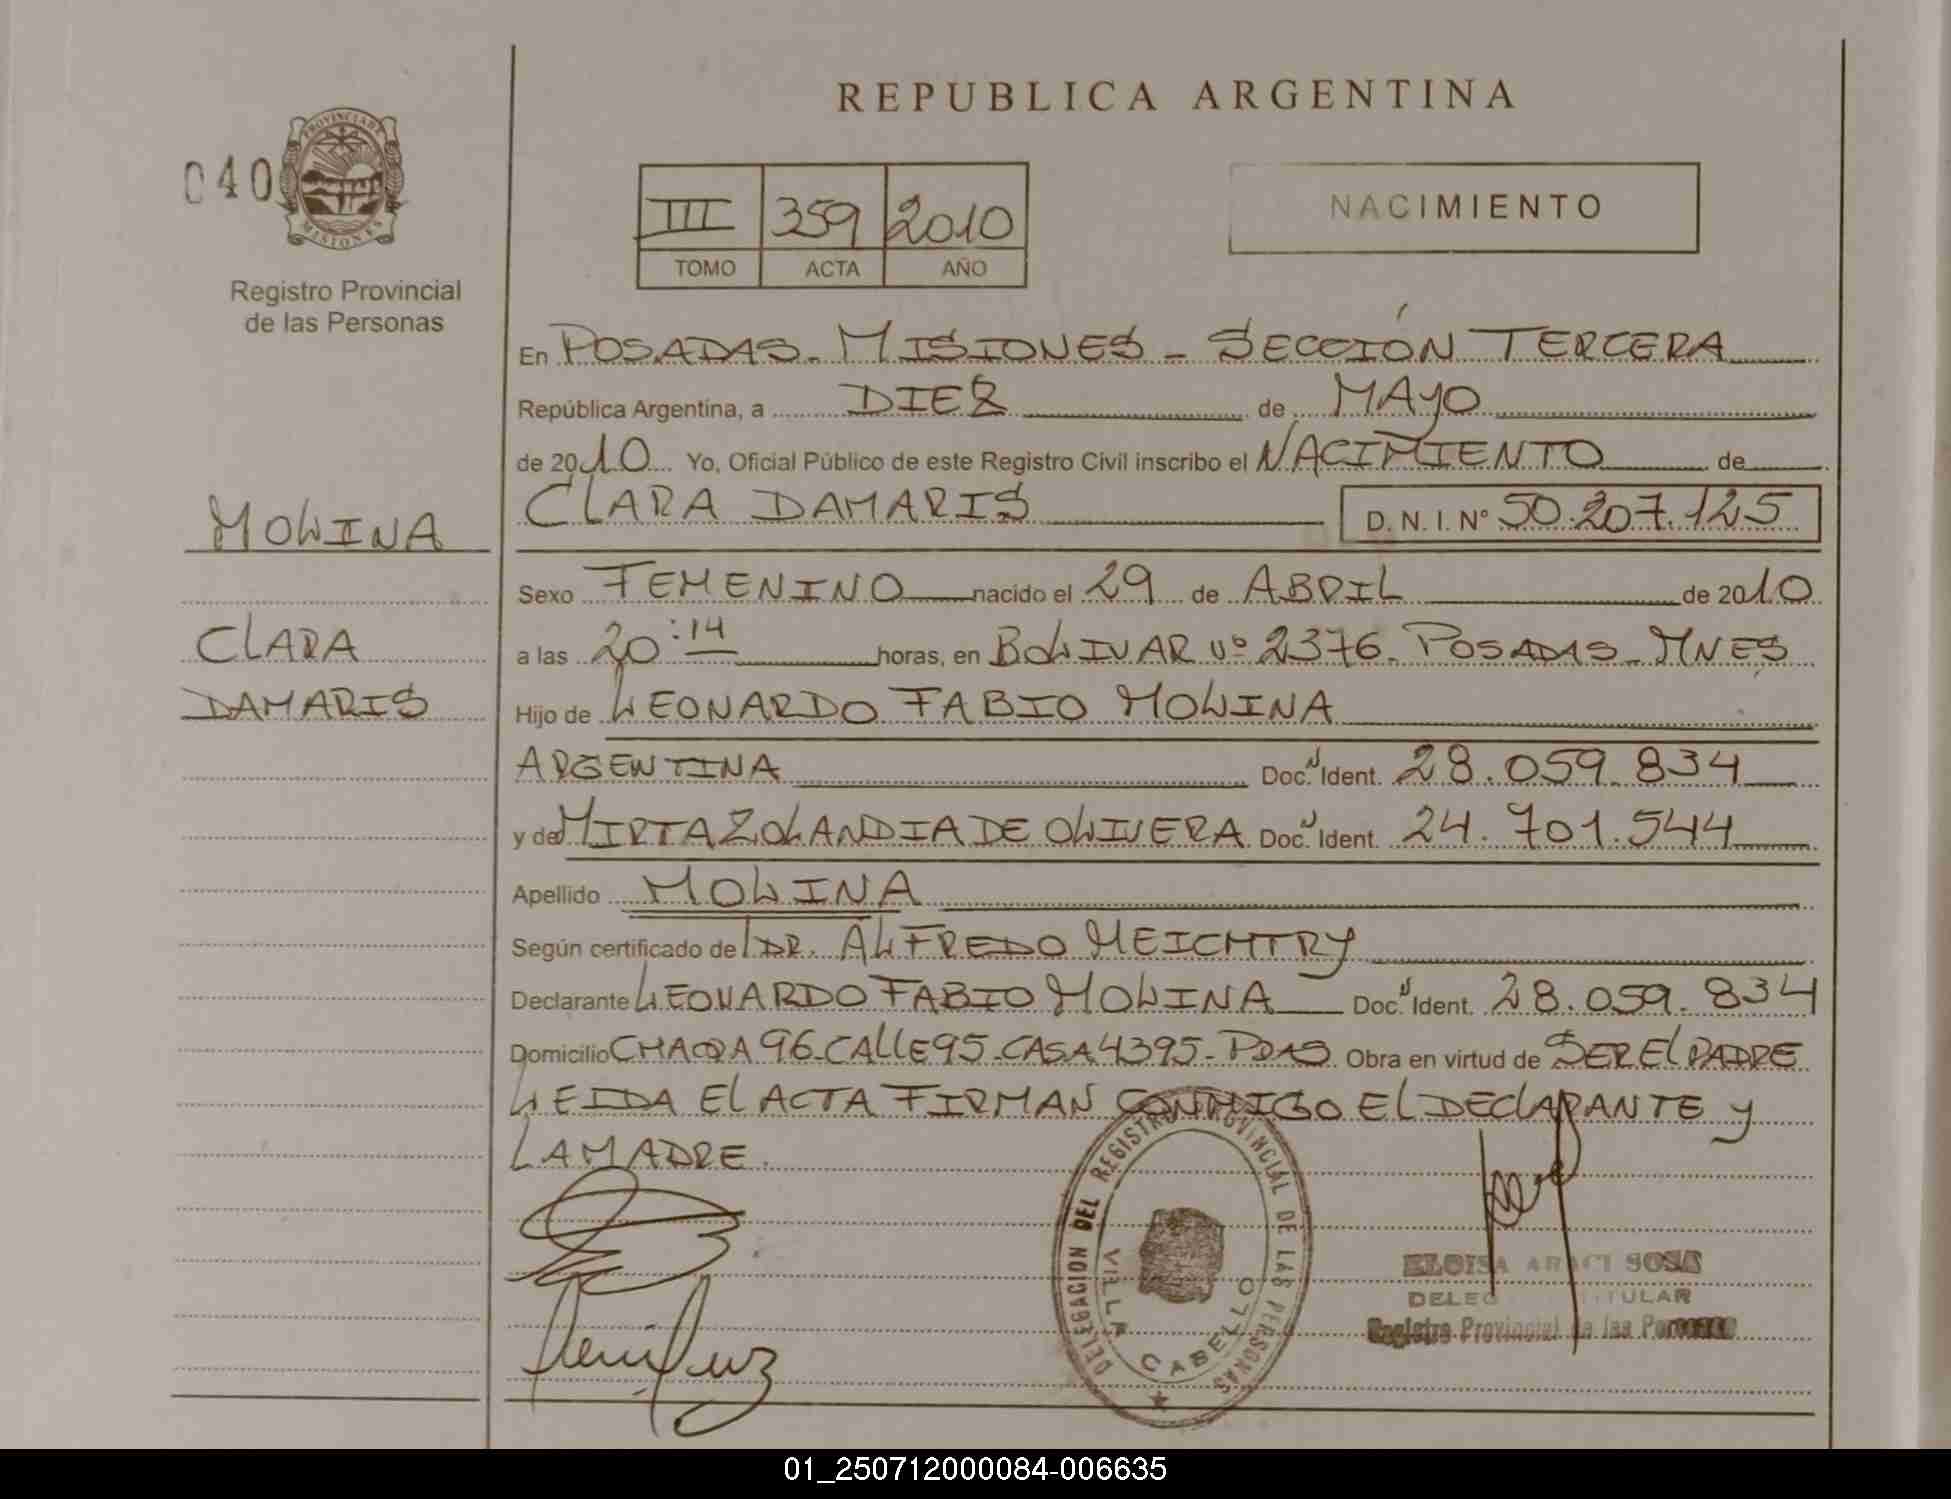 REPUBLICA ARGENTINA
040
PROVINCIA DE MISIONES
Registro Provincial
de las Personas
III 359 2010
TOMO ACTA AÑO
NACIMIENTO
En POSADAS - MISIONES - SECCIÓN TERCERA
República Argentina, a DIEZ de MAYO
de 2010 Yo, Oficial Público de este Registro Civil inscribo el NACIMIENTO de
CLARA DAMARIS D. N. I. Nº 50.207.125
MOLINA
CLARA
DAMARIS
Sexo FEMENINO nacido el 29 de ABRIL de 2010
a las 20:14 horas, en BOLIVAR Nº 2376 - POSADAS - MNES
Hijo de LEONARDO FABIO MOLINA
ARGENTINA Doc. Ident. 28.059.834
y de MIRTA ZOLANDIA DE OLIVERA Doc. Ident. 24.701.544
Apellido MOLINA
Según certificado de DR. ALFREDO MEICHTRY
Declarante LEONARDO FABIO MOLINA Doc. Ident. 28.059.834
Domicilio CHACRA 96 - CALLE 95 - CASA 4395 - PDAS Obra en virtud de SER EL PADRE
LEIDA EL ACTA FIRMAN CONMIGO EL DECLARANTE Y
LA MADRE.
DELEGACION DEL REGISTRO PROVINCIAL DE LAS PERSONAS
VILLA CABELLO
ELOISA ARACI SOSA
TITULAR
Registro Provincial de las Personas
01_250712000084-006635